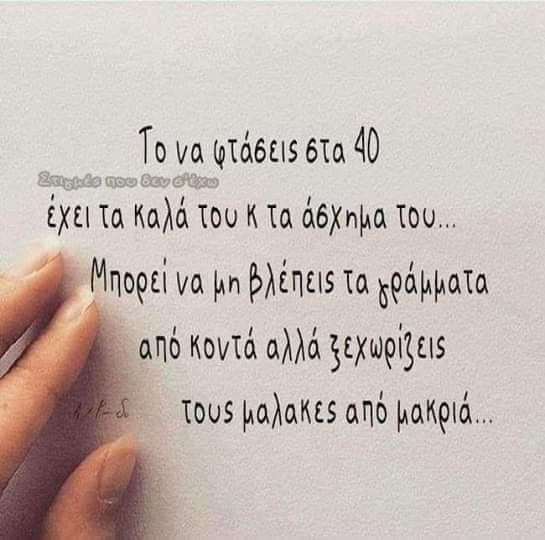 Το να φτάσεις στα 40
Στιγμές που δεν σ'έχω
έχει τα καλά του κ τα άσχημα του...
Μπορεί να μη βλέπεις τα γράμματα
από κοντά αλλά ξεχωρίζεις
τους μαλακες από μακριά...